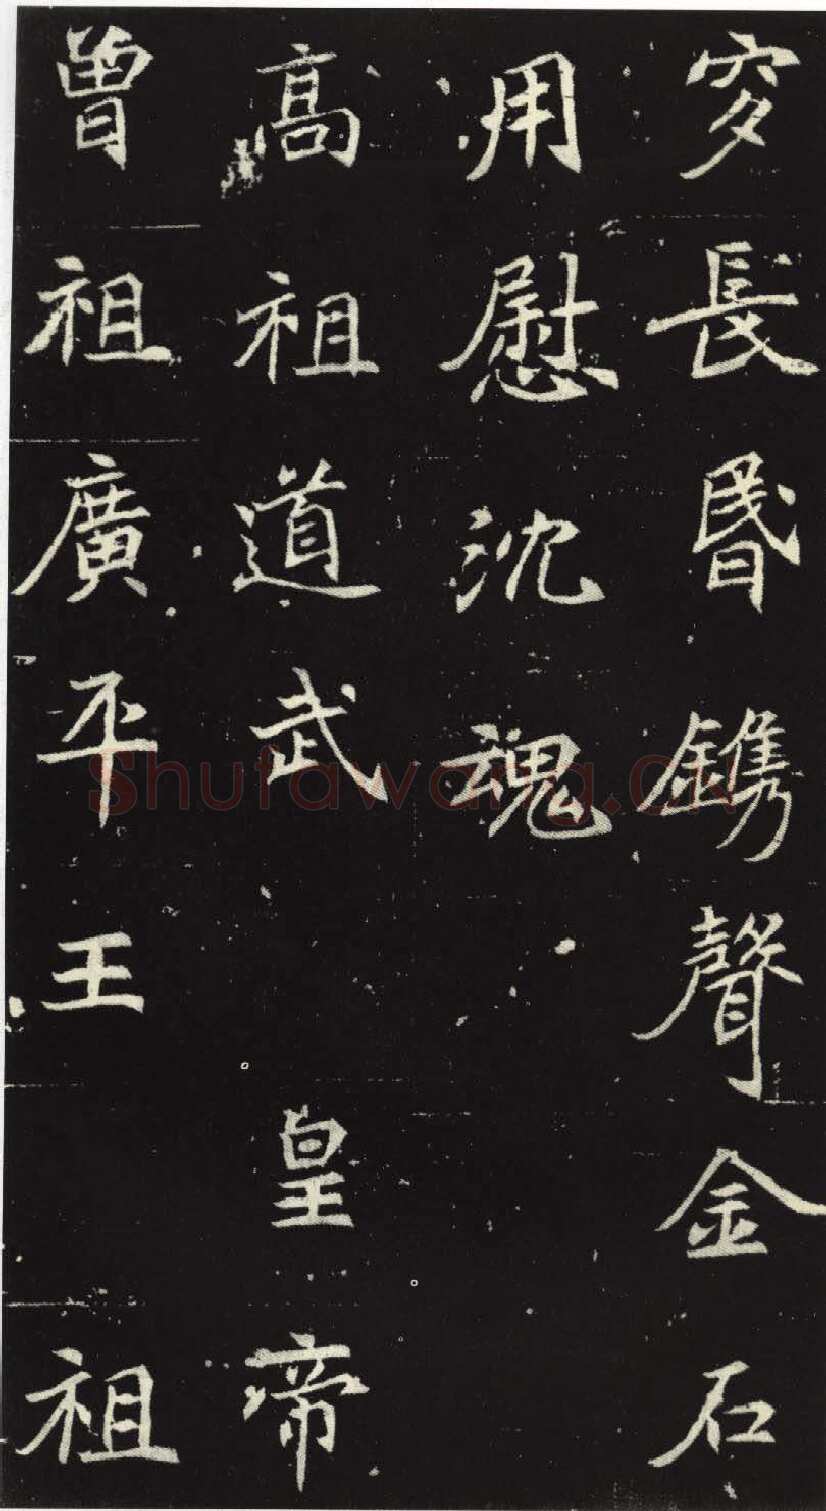 穸長昬鐫聲金石
用慰沈魂
高祖道武皇帝
曾祖廣平王祖
Shufawang.cn